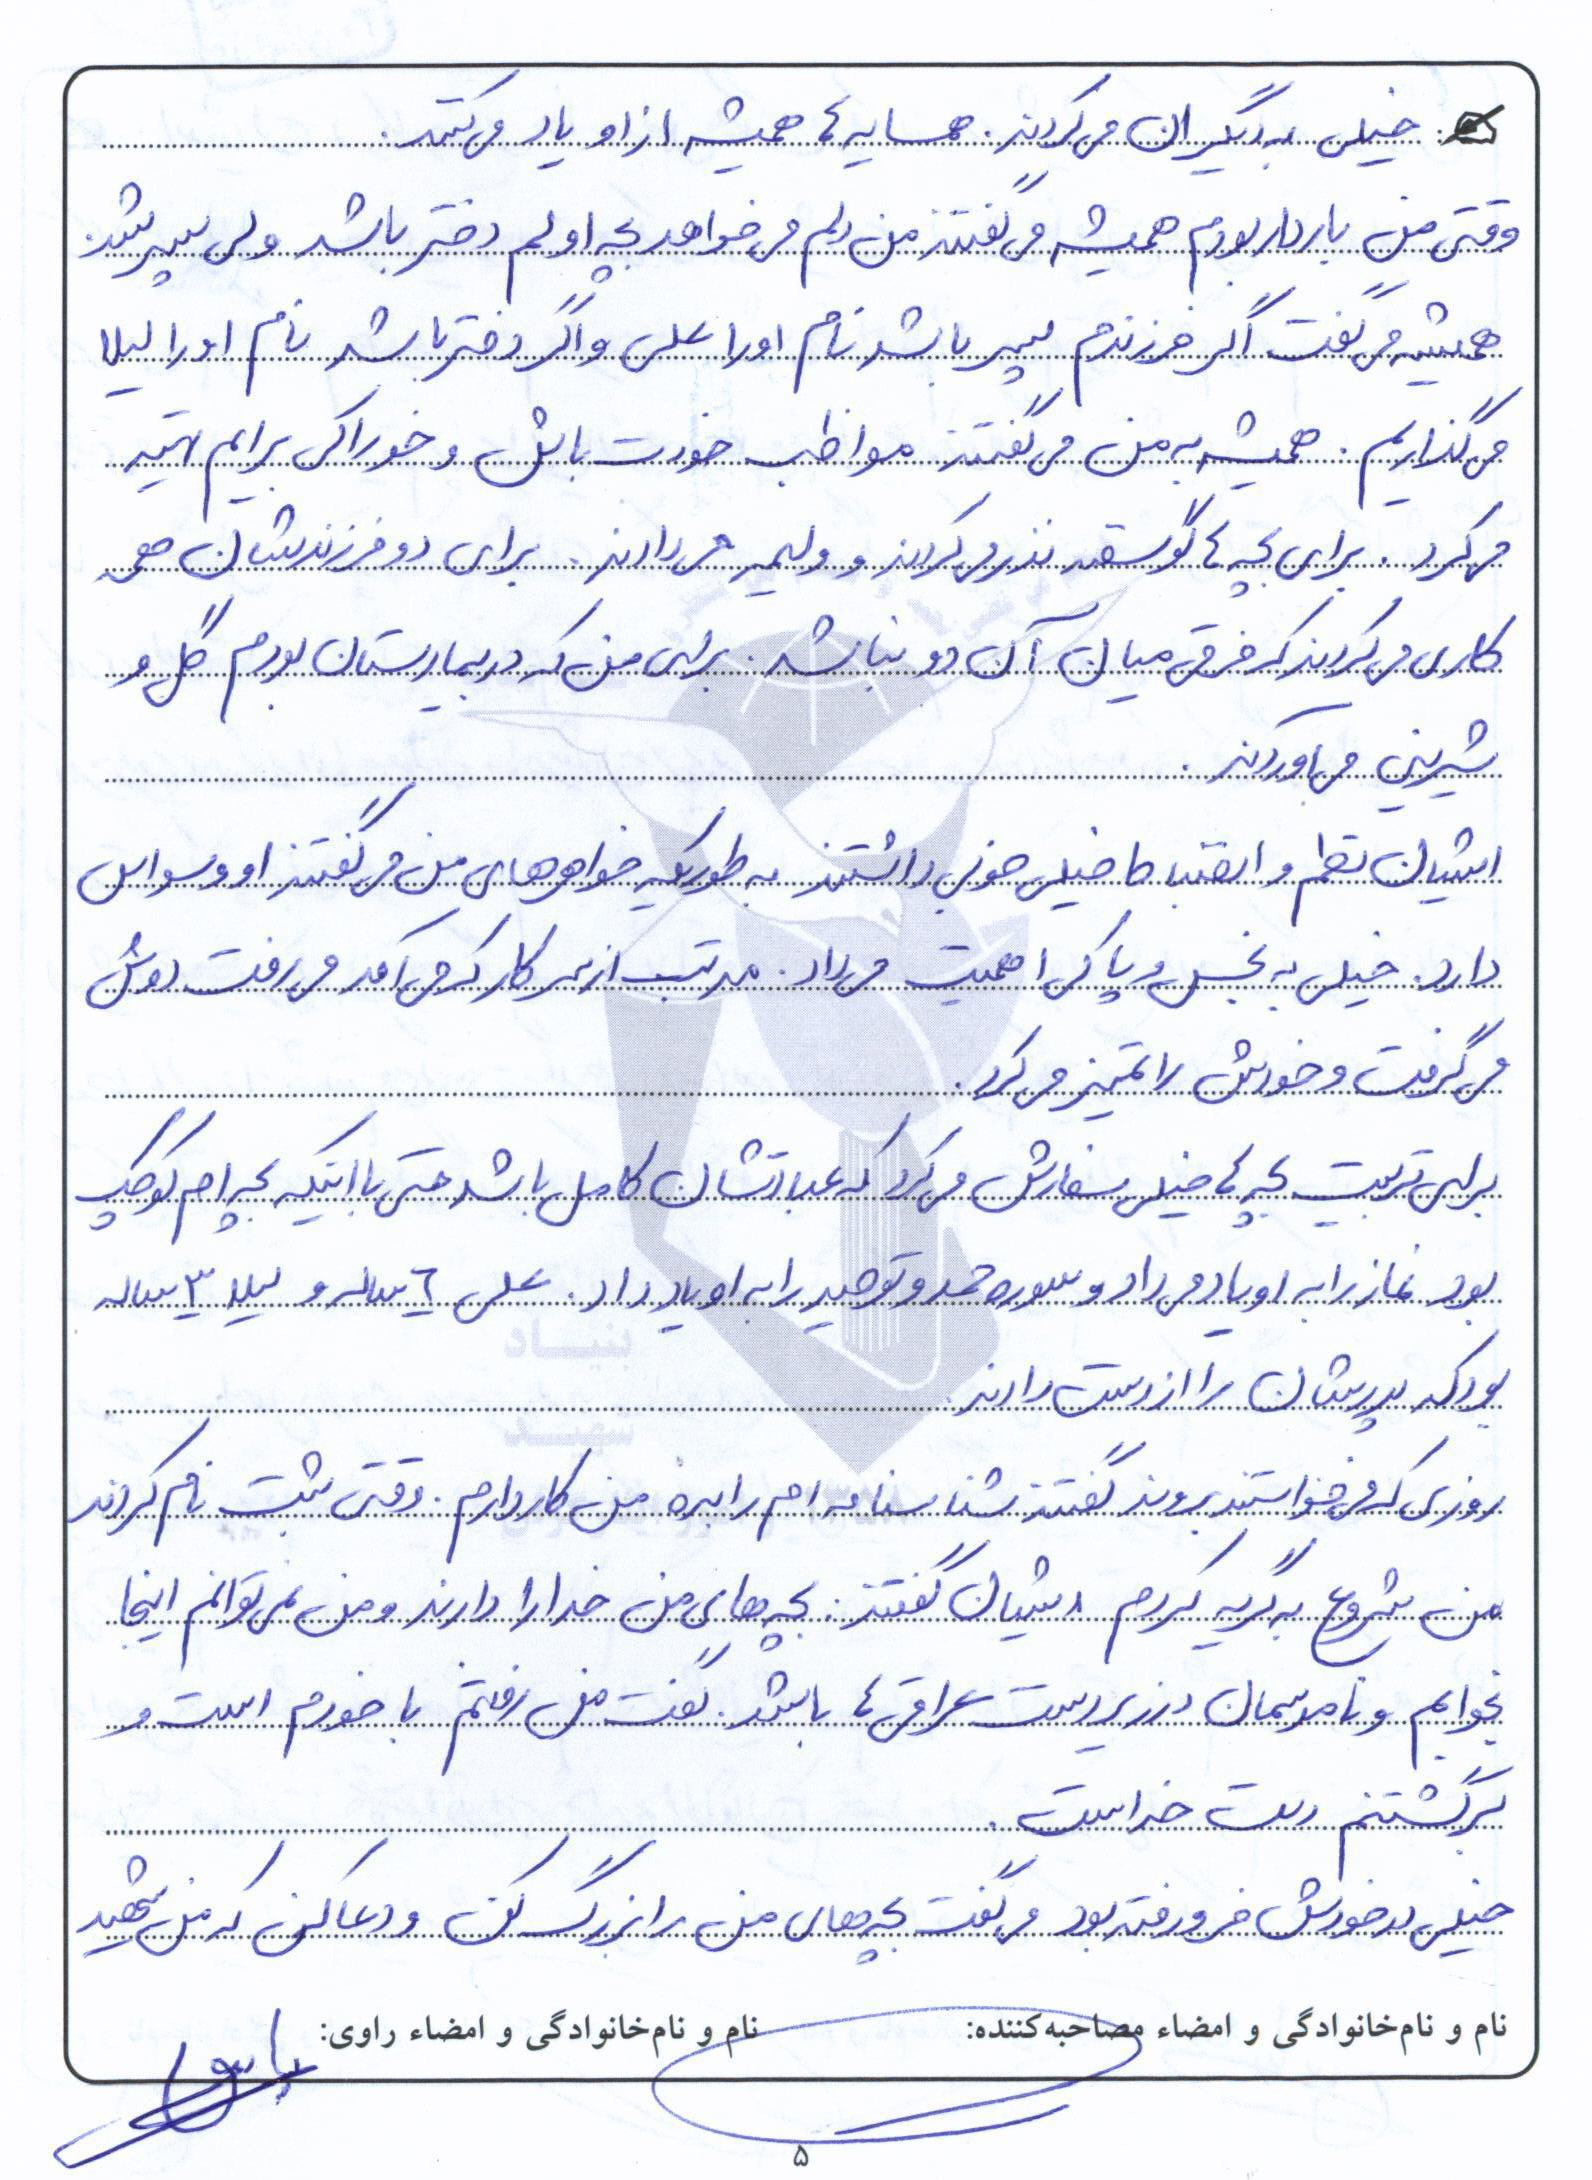 خیلی به دیگران می‌کردند. همسایه ها همیشه از او یاد می‌کنند.
وقتی من باردار بودم همیشه می‌گفتند من دلم می‌خواهد بچه اولم دختر باشد ولی پسر شد.
همیشه می‌گفت اگر فرزندم پسر باشد نام او را علی و اگر دختر باشد نام او را لیلا
می‌گذاریم. همیشه به من می‌گفتند مواظب خودت باش و خوراکی برایم تهیه
می‌کرد. برای بچه ها گوسفند نذر می‌کردند و ولیمه می‌دادند. برای دو فرزندشان همه
کاری می‌کردند که فرقی میان آن دو نباشد. برای من که در بیمارستان بودم گل و
شیرینی می‌آوردند.
ایشان نظم و انضباط خیلی خوبی داشتند به طوریکه خواهرهای من می‌گفتند او وسواس
دارد. خیلی به نجس و پاکی اهمیت می‌داد. مرتب از سر کار که می‌آمد می‌رفت دوش
می‌گرفت و خودش را تمیز می‌کرد.
برای تربیت بچه ها خیلی سفارش می‌کرد که عباداتشان کامل باشد حتی با اینکه بچه ام کوچک
بود نماز را به او یاد می‌داد و سوره حمد و توحید را به او یاد داد. علی ٦ ساله و لیلا ٣ ساله
بود که پدرشان را از دست دادند.
روزی که می‌خواستند بروند گفتند شناسنامه ام را بده من کار دارم. وقتی ثبت نام کردند
من شروع به گریه کردم ایشان گفتند: بچه‌های من خدا را دارند و من نمی‌توانم اینجا
بخوابم و ناموسمان در زیر دست عراقی ها باشد. گفت من رفتنم با خودم است و
برگشتنم دست خداست.
خیلی در خودش فرو رفته بود می‌گفت بچه‌های من را بزرگ کن و دعا کن که من شهید
نام و نام‌خانوادگی و امضاء مصاحبه‌کننده:
نام و نام‌خانوادگی و امضاء راوی:
بنیاد
شهید
۵